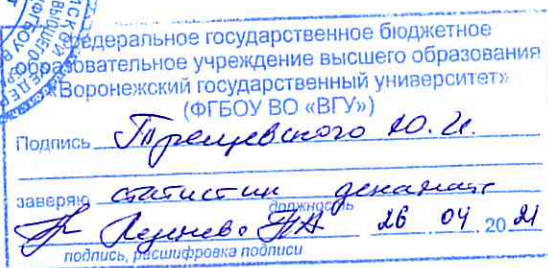 Федеральное государственное бюджетное
образовательное учреждение высшего образования
«Воронежский государственный университет»
(ФГБОУ ВО «ВГУ»)
Подпись Трещевского Ю.И.
заверяю статистик деканата
должность
26 04 20 21
подпись, расшифровка подписи